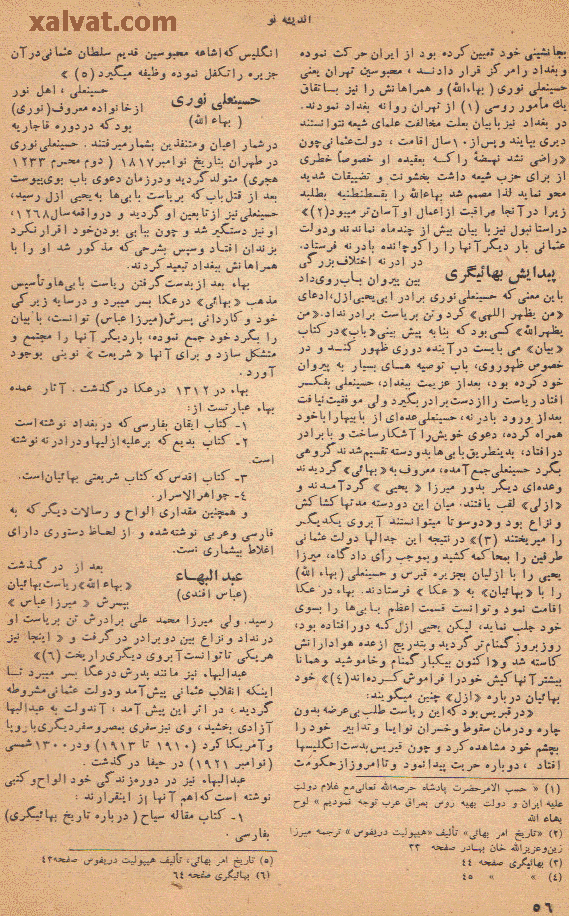 xalvat.com
اندیشه نو
بجانشینی خود تعیین کرده بود از ایران حرکت نموده
و بغداد را مرکز قرار دادند، محبوسین تهران یعنی
حسینعلی نوری (بهاءالله) و همراهانش را نیز باتفاق
یک مأمور روسی (۱) از تهران روانه بغداد نمودند.
در بغداد نیز بابیان بعلت مخالفت علمای شیعه نتوانستند
دیری بپایند و پس از ۱۰ سال اقامت، دولت عثمانی چون
«راضی نشد نهضة را که بعقیده او خصوصاً خطری
از برای حزب شیعه داشت بخشونت و تضییقات شدید
محو نماید لذا مصمم شد بهاءالله را بقسطنطنیه بطلبد
زیرا در آنجا مراقبت از اعمال او آسان تر میبود (۲)»
در استانبول نیز بابیان بیش از چند ماه نماندند و دولت
عثمانی بار دیگر آنها را کوچانده بادرنه فرستاد.
پیدایش بهائیگری
در ادرنه اختلاف بزرگی
بین پیروان باب روی داد
باین معنی که حسینعلی نوری برادر ابی یحیی ازل، ادعای
«من یظهر اللهی» کرد و تن بریاست برادر نداد. «من
یظهرالله» کسی بود که بنا به پیش بینی «باب» در کتاب
«بیان» می بایست در آینده دوری ظهور کند و در
خصوص ظهور وی، باب توصیه های بسیار به پیروان
خود کرده بود، بعد از عزیمت ببغداد، حسینعلی بفکر
افتاد ریاست را از دست برادر بگیرد ولی موفقیت نیافت
بعد از ورود بادرنه، حسینعلی عده‌ای از بابیها را با خود
همراه کرده، دعوی خویش را آشکار ساخت و با برادر
در افتاد، بدینطریق بابی ها بدو دسته تقسیم شدند گروهی
بگرد حسینعلی جمع آمده، معروف به «بهائی» گردیدند
و عده‌ای دیگر بدور میرزا «یحیی» گرد آمدند و
«ازلی» لقب یافتند، میان این دو دسته مدتها کشاکش
و نزاع بود و «دوسو تا میتوانستند آبروی یکدیگر
را میریختند (۳)» در نتیجه این جدالها دولت عثمانی
طرفین را بمحاکمه کشید و بموجب رأی دادگاه، میرزا
یحیی را با ازلیان بجزیره قبرس و حسینعلی (بهاء الله)
را با «بهائیان» به «عکا» فرستادند. بهاء در عکا
اقامت نمود و توانست قسمت اعظم بابی ها را بسوی
خود جلب نماید، لیکن یحیی ازل که دور افتاده بود،
روز بروز گمنام تر گردید و بتدریج از عده هوادارانش
کاسته شد و «اکنون بیکبار گمنام و خاموشید و همانا
بیشتر آنها کیش خود را فراموش کرده‌اند (۴)» خود
بهائیان درباره «ازل» چنین میگویند:
«در قبرس بود که این ریاست طلب بی عرضه بدون
چاره و درمان سقوط و خسران نوایا و تدابیر خود را
بچشم خود مشاهده کرد و چون قبرس بدست انگلیسها
افتاد، دوباره حریت پیدا نمود و تا امروز از حکومت
(۱) «حسب الامر حضرت پادشاه حرصه‌الله تعالی مع غلام دولت
علیه ایران و دولت بهیه روس بعراق عرب توجه نمودیم» لوح
بهاء الله
(۲) «تاریخ امر بهائی» تألیف «هیپولیت دریفوس» ترجمه میرزا
زین و عزیزالله خان بهادر صفحه ۳۳
(۳) بهائیگری صفحه ۴۴
(۴) » » ۴۵
انگلیس که اشاعه محبوسین قدیم سلطان عثمانی در آن
جزیره را تکفل نموده وظیفه میگیرد (۵)»
حسینعلی نوری
(بهاء الله)
حسینعلی، اهل نور
از خانواده معروف (نوری)
بود که در دوره قاجاریه
در شمار اعیان و متنفذین بشمار میرفتند. حسینعلی نوری
در طهران بتاریخ نوامبر ۱۸۱۷ (دوم محرم ۱۲۳۳
هجری) متولد گردید و در زمان دعوی باب بوی پیوست
بعد از قتل باب که ریاست بابی ها به یحیی ازل رسید،
حسینعلی نیز از تابعین او گردید و در واقعه سال ۱۲۶۸،
او نیز دستگیر شد و چون ببابی بودن خود اقرار نکرد
بزندان افتاد و سپس بشرحی که مذکور شد او را با
همراهانش ببغداد تبعید کردند.
بهاء بعد از بدست گرفتن ریاست بابی ها و تأسیس
مذهب «بهائی» در عکا بسر میبرد و در سایه زیرکی
خود و کاردانی پسرش (میرزا عباس) توانست، بابیان
را بگرد خود جمع نموده، بار دیگر آنها را مجتمع و
متشکل سازد و برای آنها «شریعت» نوینی بوجود
آورد.
بهاء در ۱۳۱۲ در عکا در گذشت. آثار عمده
بهاء عبارتست از:
۱- کتاب ایقان بفارسی که در بغداد نوشته است
۲- کتاب بدیع که بر علیه ازلیها و در ادرنه نوشته
است.
۳- کتاب اقدس که کتاب شریعتی بهائیان است.
۴- جواهر الاسرار.
و همچنین مقداری الواح و رسالات دیگر که به
فارسی و عربی نوشته شده و از لحاظ دستوری دارای
اغلاط بیشماری است.
عبد البهاء
(عباس افندی)
بعد از در گذشت
«بهاء الله» ریاست بهائیان
بپسرش «میرزا عباس»
رسید. ولی میرزا محمد علی برادرش تن بریاست او
در نداد و نزاع بین دو برادر در گرفت و «اینجا نیز
هر یکی تا توانست آبروی دیگری را ریخت (۶)»
عبدالبهاء نیز مانند پدرش در عکا بسر میبرد تا
اینکه انقلاب عثمانی پیش آمد و دولت عثمانی مشروطه
گردید، در اثر این پیش آمد، آن دولت به عبدالبها
آزادی بخشید، وی نیز سفری بمصر و سفر دیگری باروپا
و آمریکا کرد (۱۹۱۰ تا ۱۹۱۳) و در ۱۳۰۰ شمسی
(نوامبر ۱۹۲۱) در حیفا در گذشت.
عبدالبهاء نیز در دوره زندگی خود الواح و کتبی
نوشته است که اهم آنها از اینقرارند:
۱- کتاب مقاله سیاح (درباره تاریخ بهائیگری)
بفارسی.
(۵) تاریخ امر بهائی، تألیف هیپولیت دریفوس صفحه ۴۲
(۶) بهائیگری صفحه ۶۴
۵۶